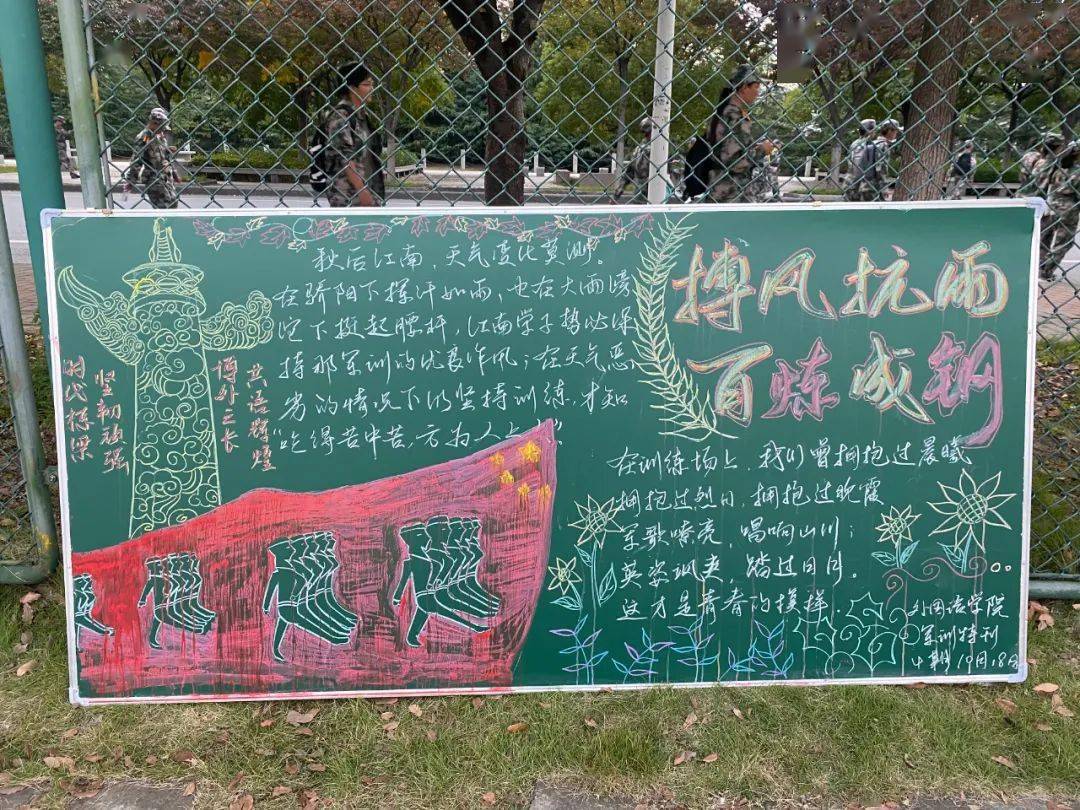 秋后江南，天气变化莫测。
在骄阳下挥汗如雨，也在大雨磅
沱下挺起腰杆，江南学子势必保
持那军训的优良作风；在天气恶
劣的情况下仍坚持训练，才知
“吃得苦中苦，方为人上
共语辉煌
博外之长
坚韧顽强
时代梁
搏风抗雨
百炼成钢
在训练场上，我们曾拥抱过晨曦
拥抱过烈日，拥抱过晚霞
军歌嘹亮，唱响山川；
英姿飒爽，踏过日月。
这才是青春的模样．
外国语学院
军训特刊
10月18日